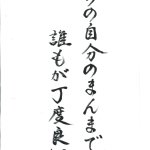 の自分のまんまで
誰もが丁度良